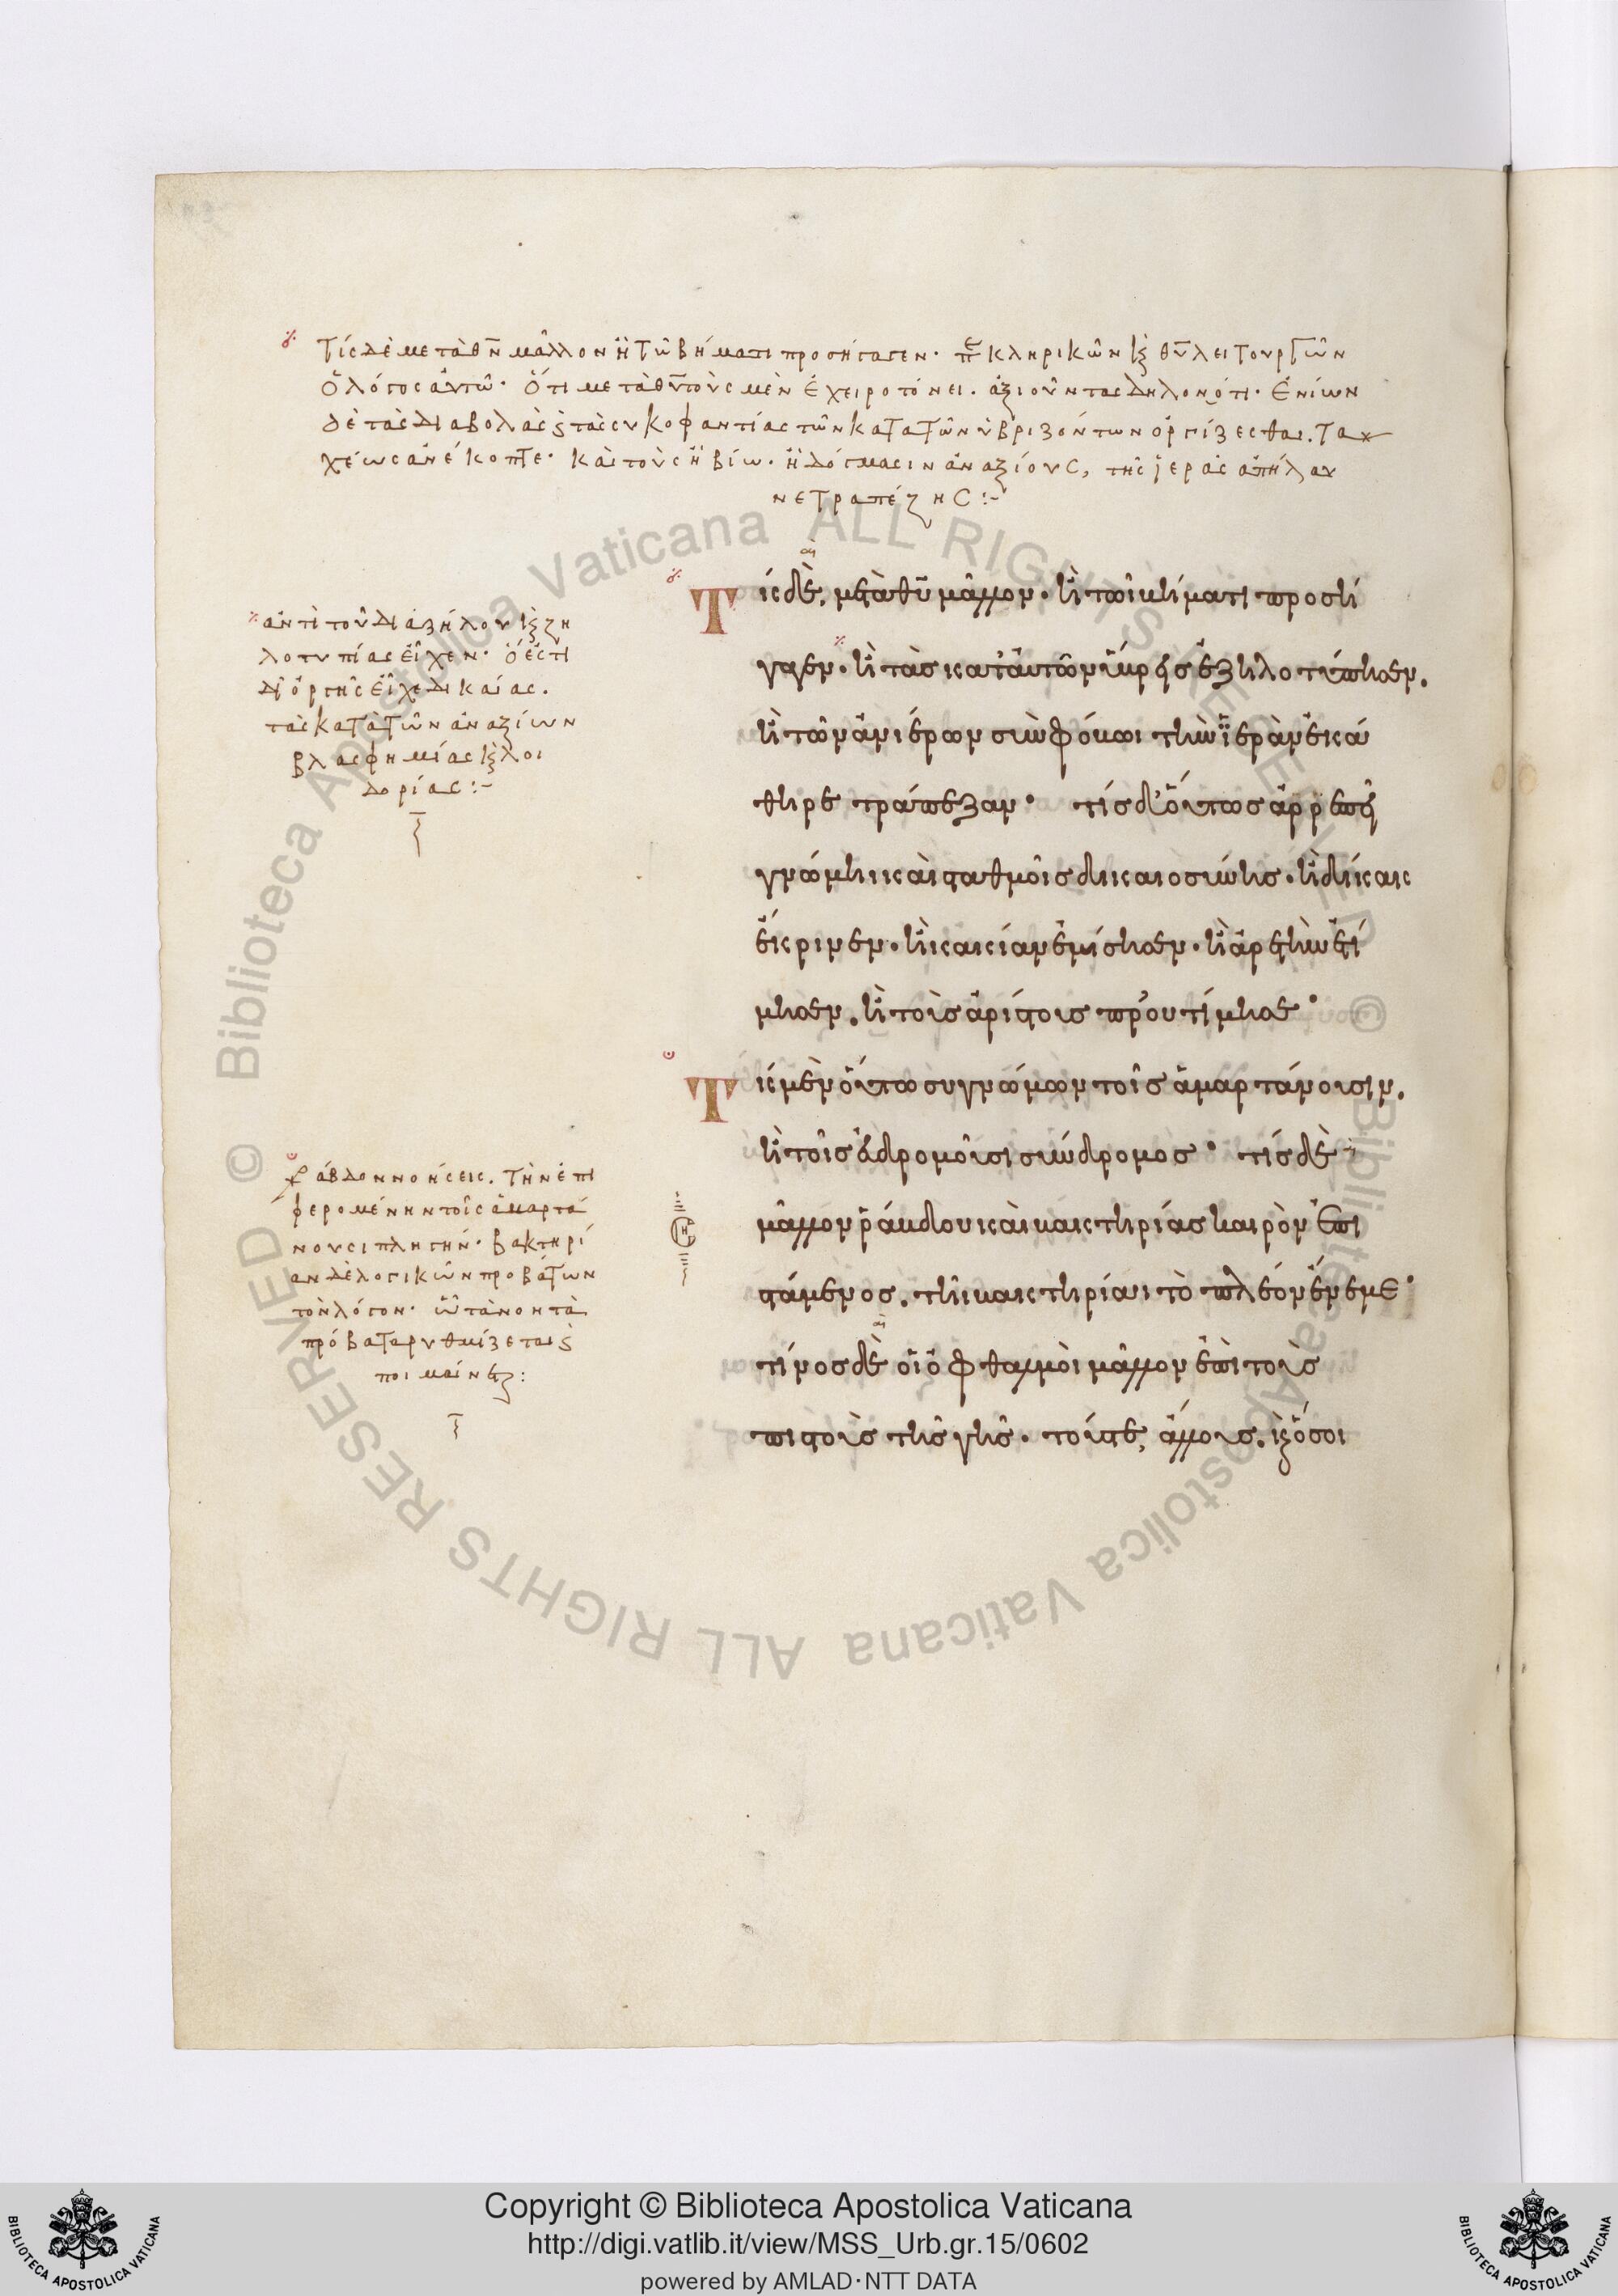 Τίς δὲ μετὰ θῡ μᾶλλον ἢ τῶ βήματι προσήγαγεν· π κληρικῶν κ(αὶ) θῡ λειτουργῶν
ὁ λόγος αὐτῶ· ὅτι μετὰ θῡ τοὺς μὲν ἐχειροτόνει. ἀξιοῦντας δηλονότι· ἐνίων
δὲ τὰς διαβολὰς κ(αὶ) τὰς συκοφαντίας τῶν κατ᾽ αὐτῶν ὑβριζόντων ὀργίζεσθαι. τα
χέως ἀνέκοπτε· καὶ τοὺς ἢ βίω· ἢ δόγμασιν ἀναξίους, τῆς ἱερᾶς ἀπήλαυ
νε τραπέζης :-
Τίς δὲ, μετὰ θῡ μᾶλλον· ἢ τῶι βήματι προσή
γαγεν· ἢ τὰς κατ᾽ αὐτῶν ὕβρεις ἐζηλοτύπησεν.
ἢ τῶν ἀνιέρων σὺν φόβωι τὴν ἱερὰν ἐκά
θηρε τράπεζαν· τίς δ᾽ οὕτως ἀρρεπεῖ
γνώμηι καὶ σταθμοῖς δικαιοσύνης· ἢ δίκας
ἔκρινεν· ἢ κακίαν ἐμίσησεν· ἢ ἀρετὴν ἐτί
μησεν. ἢ τοὺς ἀρίστους προὐτίμησε·
Τίς μὲν οὕτω συγνώμων τοῖς ἁμαρτάνουσιν.
ἢ τοῖς εὐδρομοῦσι σύνδρομος· τίς δὲ
μᾶλλον ῥάβδου καὶ βακτηρίας καιρὸν ἐπι
στάμενος. τῆι βακτηρίαι τὸ πλέον ἔνεμε·
τίνος δὲ οἱ ὀφθαλμοὶ μᾶλλον ἐπὶ τοὺς
πιστοὺς τῆς γῆς· τούς τε, ἄλλους. κ(αὶ) ὅσοι
ἀντὶ τοῦ διὰ ζήλου κ(αὶ) ζη
λοτυπίας εἶχεν· ὅ ἐστι
δι᾽ ὀργῆς εἶχε δικαίας.
τὰς κατὰ τῶν ἀναξίων
βλασφημίας κ(αὶ) λοι
δορίας :-
ῥάβδον νοήσεις. τὴν ἐπι
φερομένην τοῖς ἁμαρτά
νουσι πληγήν· βακτηρί
αν δὲ λογικῶν προβάτων
τὸν λόγον· ὧ τὰ νοητὰ
πρόβατα ρυθμίζεται κ(αὶ)
ποιμαίνεται :
Copyright © Biblioteca Apostolica Vaticana
http://digi.vatlib.it/view/MSS_Urb.gr.15/0602
powered by AMLAD·NTT DATA
BIBLIOTECA APOSTOLICA VATICANA
BIBLIOTECA APOSTOLICA VATICANA
© Biblioteca Apostolica Vaticana ALL RIGHTS RESERVED
© Biblioteca Apostolica Vaticana ALL RIGHTS RESERVED